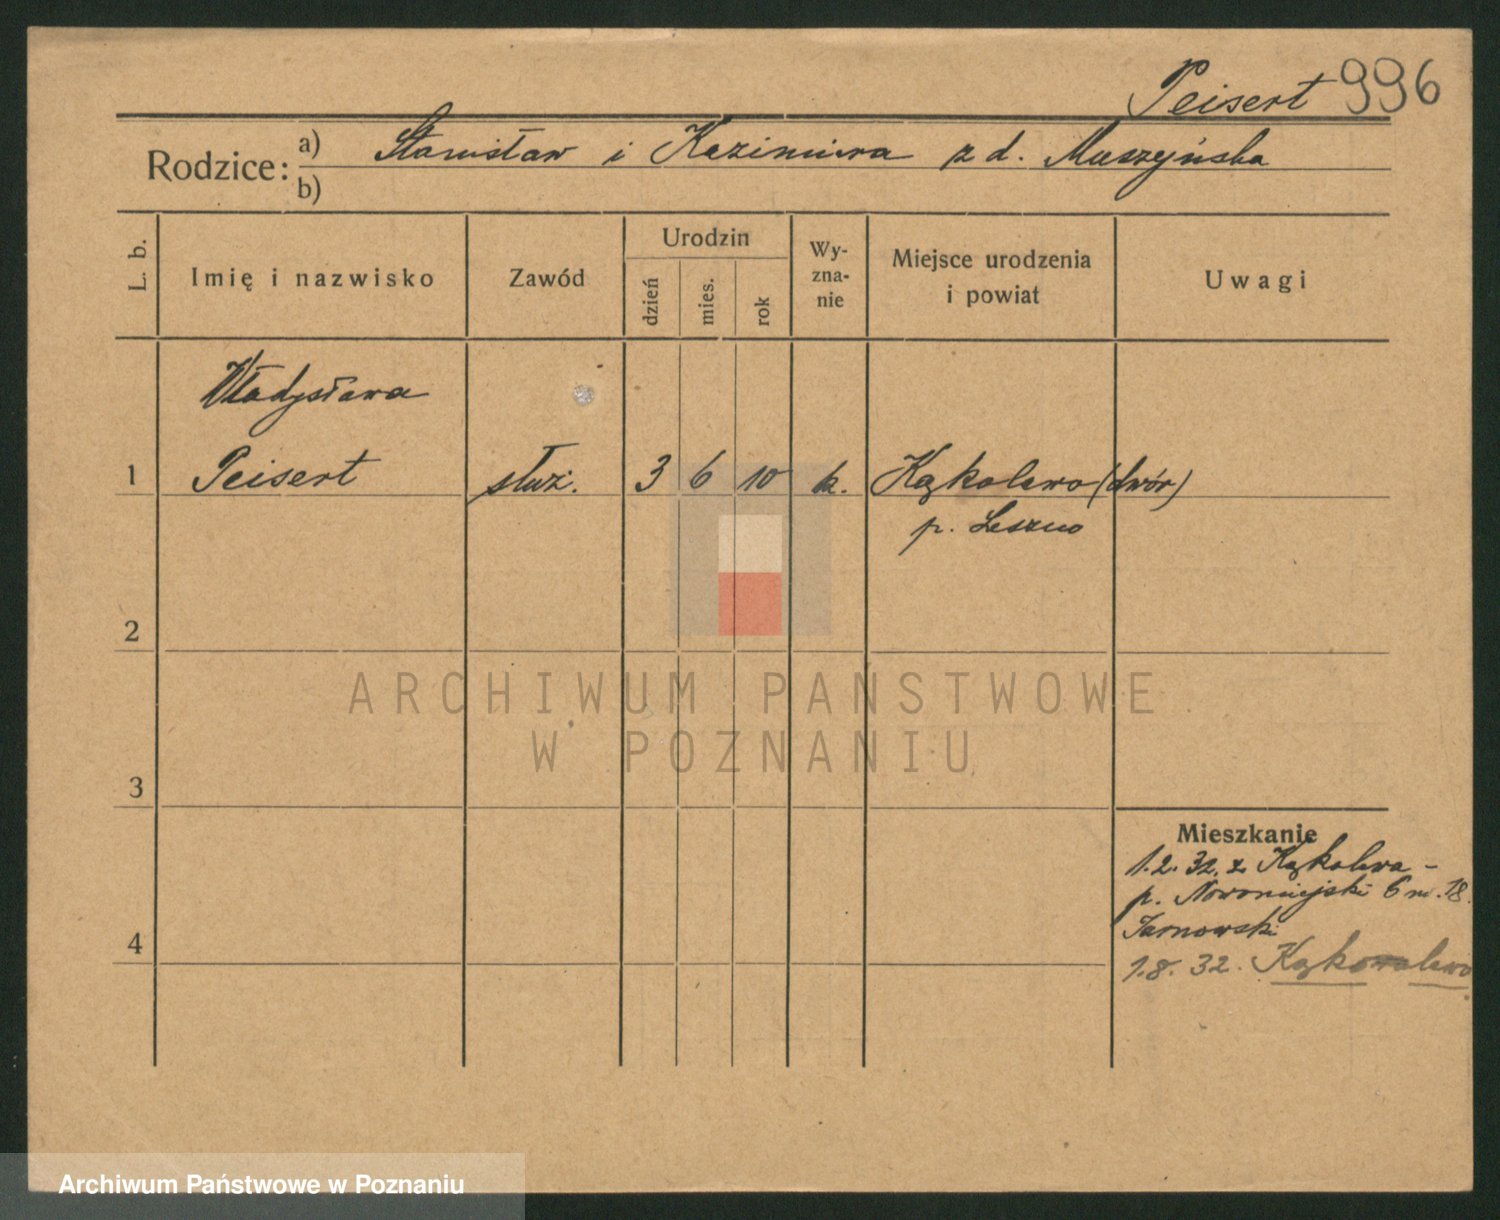 Peisert 996
Rodzice: a) Stanisław i Kazimiera z d. Muszyńska
b)
L. b.
Imię i nazwisko
Zawód
Urodzin
dzień
mies.
rok
Wy-
zna-
nie
Miejsce urodzenia
i powiat
Uwagi
Władysława
1 Peisert służ. 3 6 10 k. Kąkolewo (dwór)
p. Leszno
2
ARCHIWUM PAŃSTWOWE
W POZNANIU
3
Mieszkanie
1.2.32. z Kąkolewa -
p. Nowomiejski 6 m. 18.
Tarnowski
4
1.8.32. Kąkolewo
Archiwum Państwowe w Poznaniu